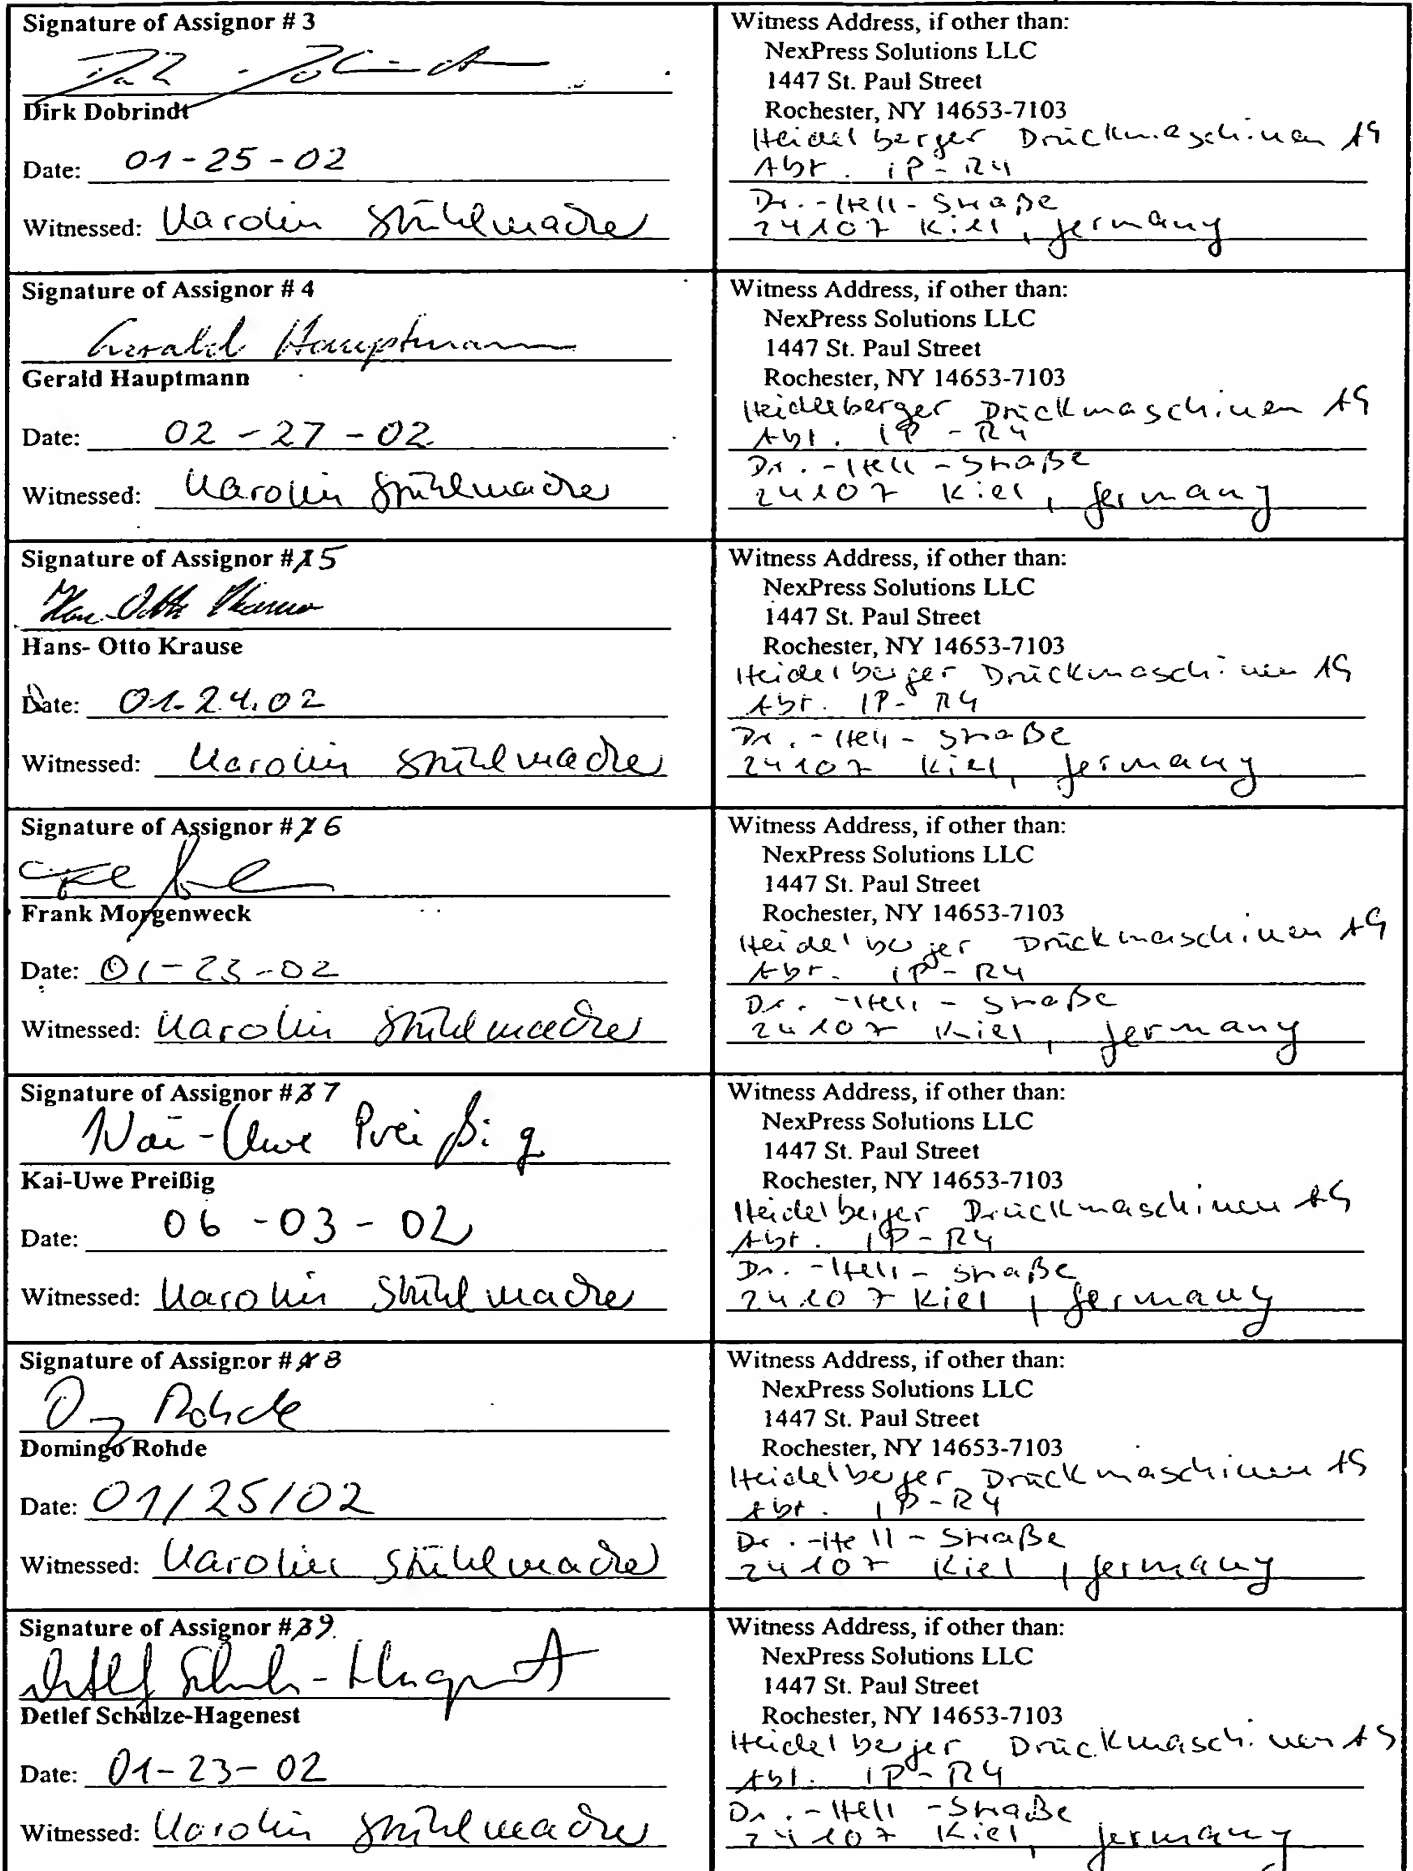 Signature of Assignor # 3
Dirk Dobrindt
Date: 01-25-02
Witnessed: Karolin Stühlmacher
Witness Address, if other than:
NexPress Solutions LLC
1447 St. Paul Street
Rochester, NY 14653-7103
Heidelberger Druckmaschinen AG
Abt. IP-R4
Dr.-Hell-Straße
24107 Kiel, Germany
Signature of Assignor # 4
Gerald Hauptmann
Gerald Hauptmann
Date: 02-27-02
Witnessed: Karolin Stühlmacher
Witness Address, if other than:
NexPress Solutions LLC
1447 St. Paul Street
Rochester, NY 14653-7103
Heidelberger Druckmaschinen AG
Abt. IP-R4
Dr.-Hell-Straße
24107 Kiel, Germany
Signature of Assignor # 5
Hans-Otto Krause
Hans- Otto Krause
Date: 01.24.02
Witnessed: Karolin Stühlmacher
Witness Address, if other than:
NexPress Solutions LLC
1447 St. Paul Street
Rochester, NY 14653-7103
Heidelberger Druckmaschinen AG
Abt. IP-R4
Dr.-Hell-Straße
24107 Kiel, Germany
Signature of Assignor # 6
Frank Morgenweck
Date: 01-23-02
Witnessed: Karolin Stühlmacher
Witness Address, if other than:
NexPress Solutions LLC
1447 St. Paul Street
Rochester, NY 14653-7103
Heidelberger Druckmaschinen AG
Abt. IP-R4
Dr.-Hell-Straße
24107 Kiel, Germany
Signature of Assignor # 7
Kai-Uwe Preißig
Kai-Uwe Preißig
Date: 06-03-02
Witnessed: Karolin Stühlmacher
Witness Address, if other than:
NexPress Solutions LLC
1447 St. Paul Street
Rochester, NY 14653-7103
Heidelberger Druckmaschinen AG
Abt. IP-R4
Dr.-Hell-Straße
24107 Kiel, Germany
Signature of Assignor # 8
Rohde
Domingo Rohde
Date: 01/25/02
Witnessed: Karolin Stühlmacher
Witness Address, if other than:
NexPress Solutions LLC
1447 St. Paul Street
Rochester, NY 14653-7103
Heidelberger Druckmaschinen AG
Abt. IP-R4
Dr.-Hell-Straße
24107 Kiel, Germany
Signature of Assignor # 9
Detlef Schulze-Hagenest
Detlef Schulze-Hagenest
Date: 01-23-02
Witnessed: Karolin Stühlmacher
Witness Address, if other than:
NexPress Solutions LLC
1447 St. Paul Street
Rochester, NY 14653-7103
Heidelberger Druckmaschinen AG
Abt. IP-R4
Dr.-Hell-Straße
24107 Kiel, Germany